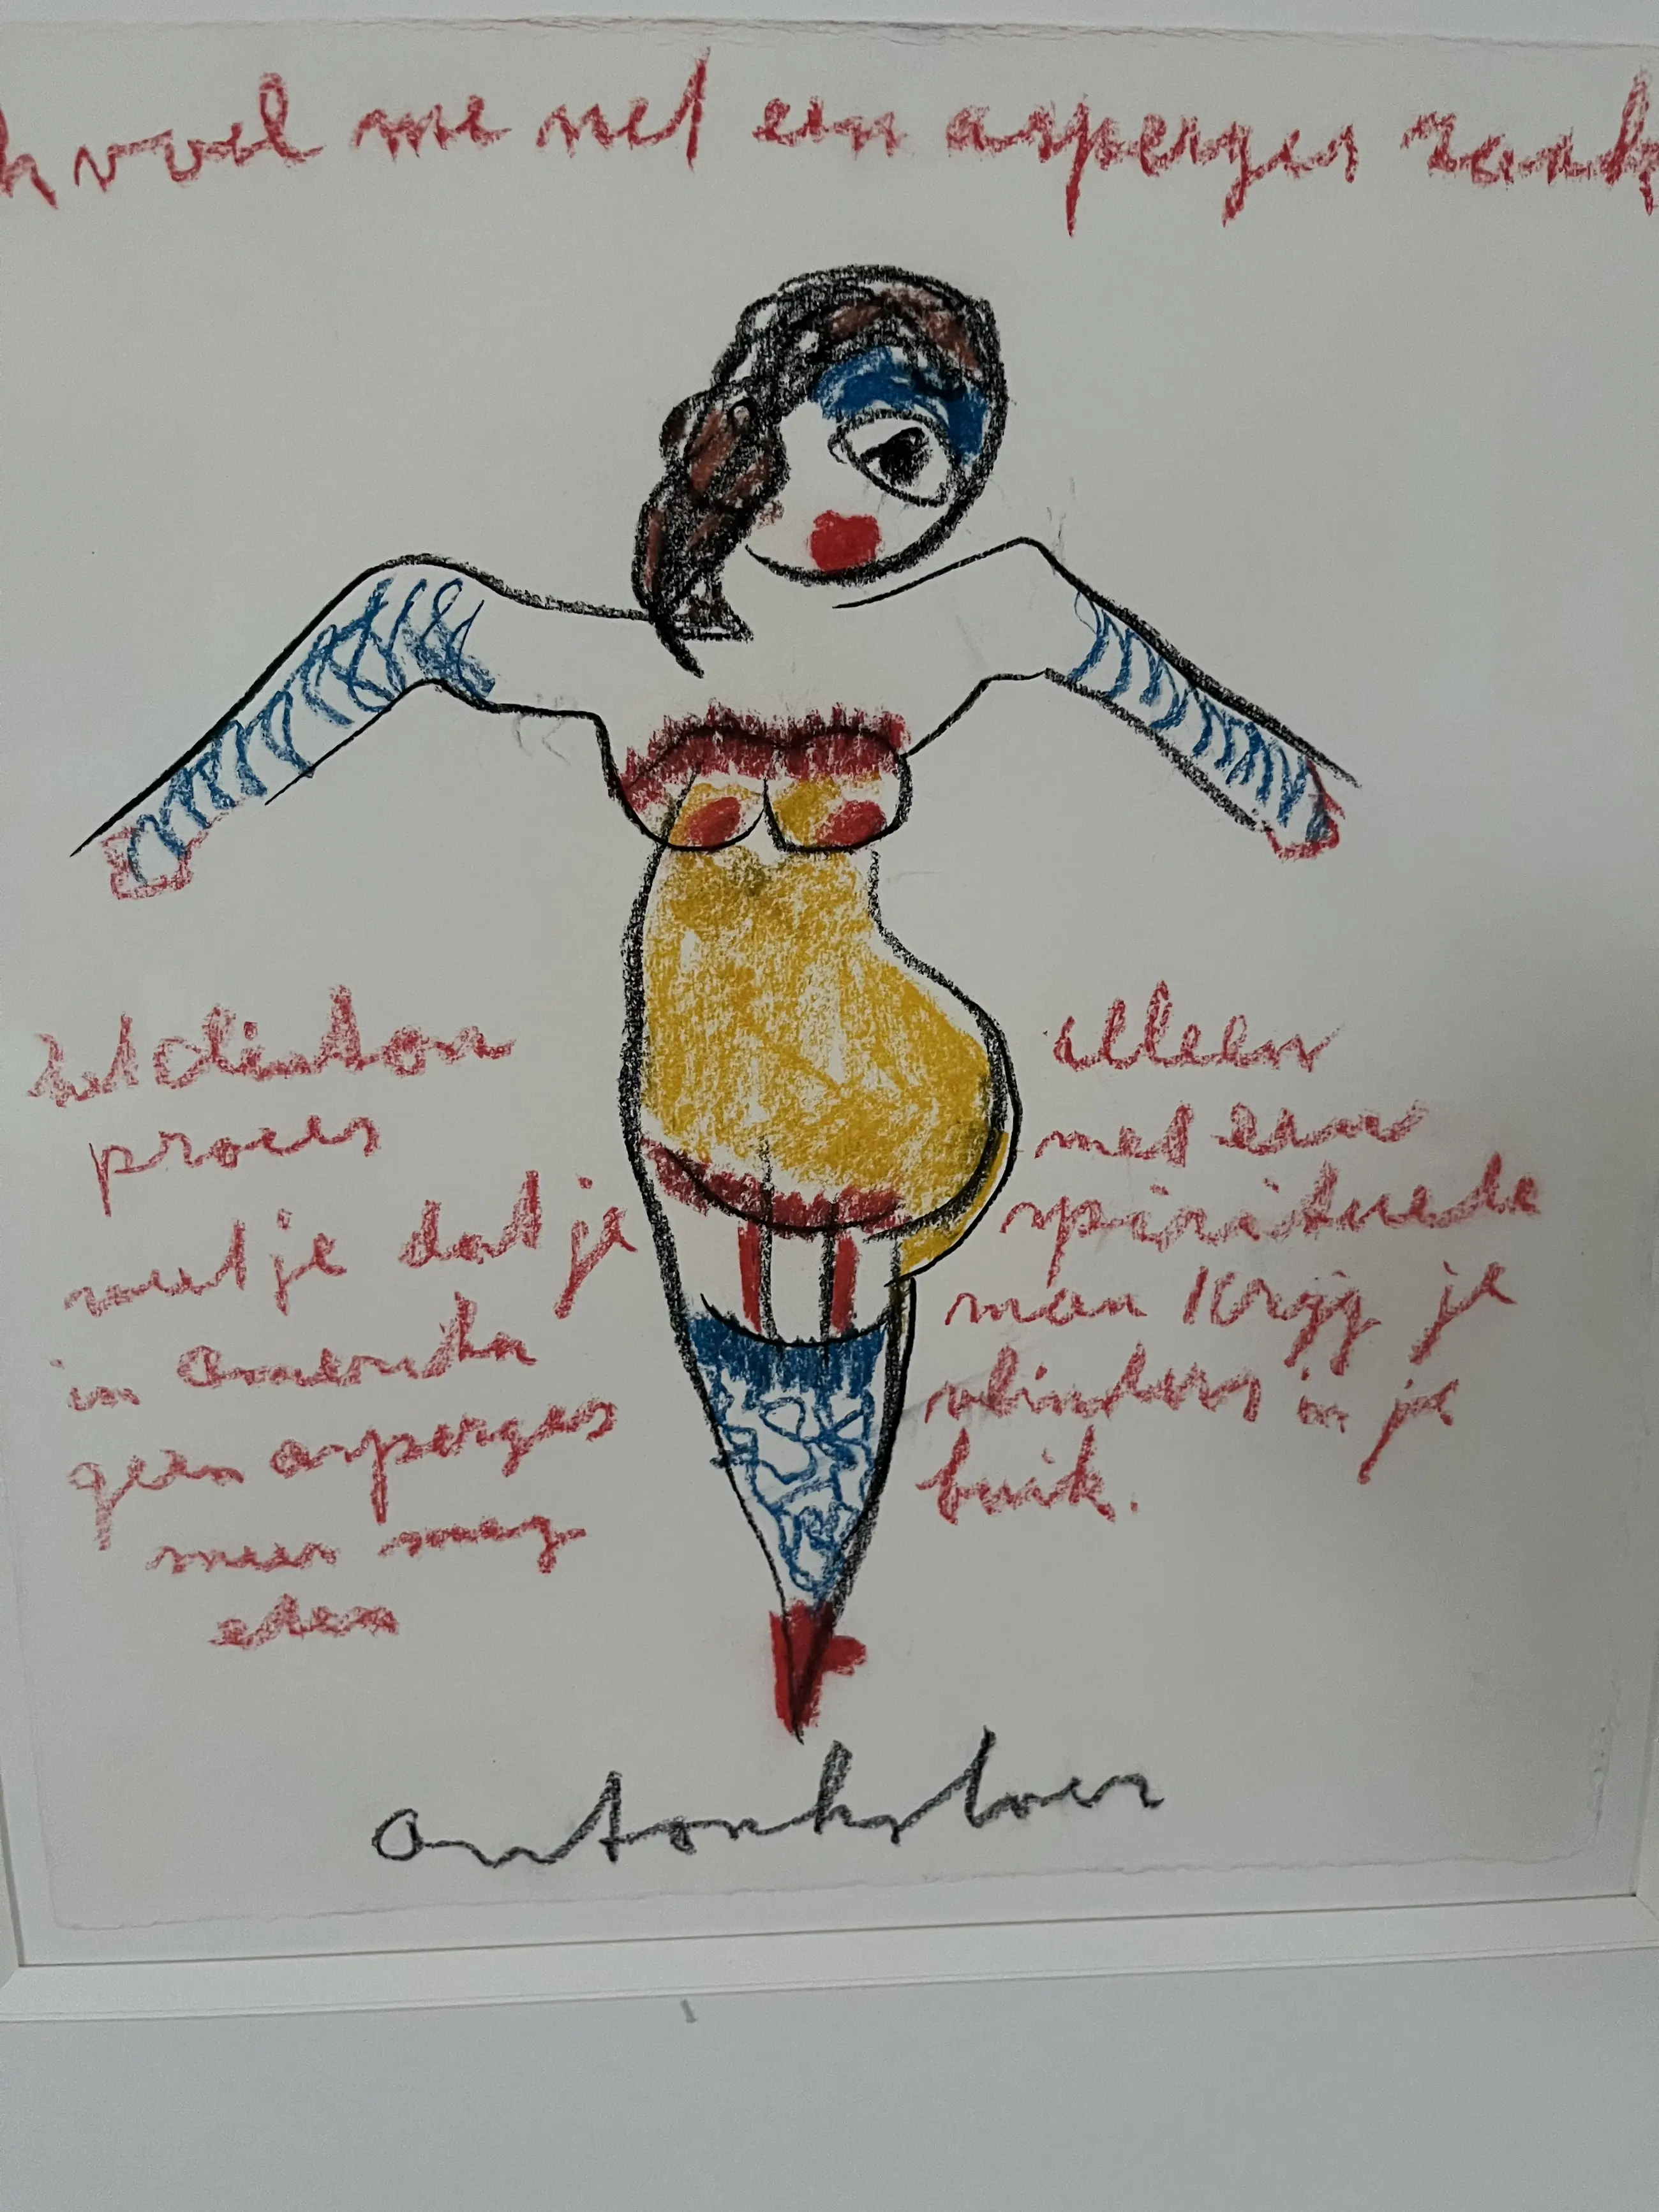 k voel me net een asperges rank
het clinton
proces
weet je dat je
in Amerika
geen asperges
meer mag
eten
alleen
met een
spirituele
man krijg je
vlinders in je
buik.